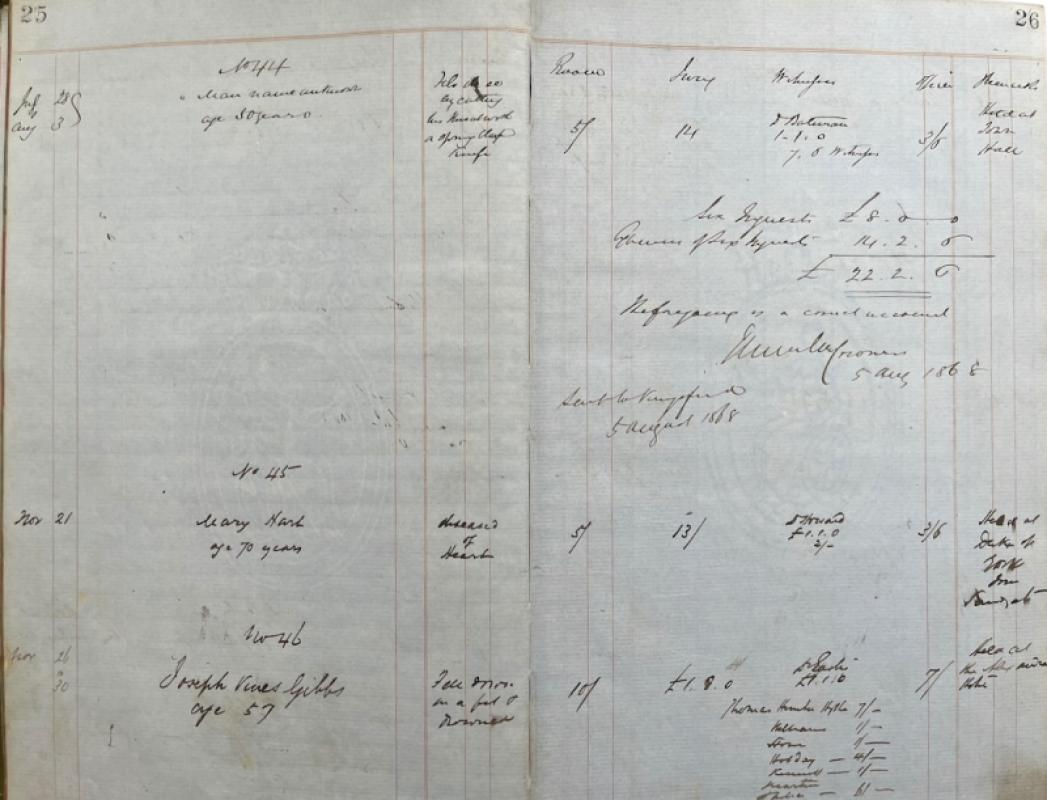 25
No 44
July 28
Aug 3
Man name unknown
age 50 years
Felo de se
by cutting
his throat with
a Spring Clasp
Knife
26
Room
Jury
Witnesses
Officer
Remarks
5/
14
Dr Bateman
1-1.0
7. 6 Witnesses
3/6
Held at
Town
Hall
Six Inquests £ 8. 0 0
Expenses of Six Inquests 14. 2. 6
£ 22. 2. 6
The foregoing is a correct account
Coroner
5 Aug 1868
Sent to
5 August 1868
No 45
Nov 21
Mary Hart
age 70 years
diseased
of
Heart
5/
13/
Dr Howard
£1.1.0
2/-
3/6
Held at
Duke of
York
Inn
Sandgate
No 46
Nov 26
30
Joseph Vines Gibbs
age 57
Fell down
in a fit &
Drowned
10/
£1. 8. 0
£1.1.0
7/
Held at
the
Hotel
Thomas Hythe 7/-
1/-
1/-
Hobday - 4/-
1/-
6/-